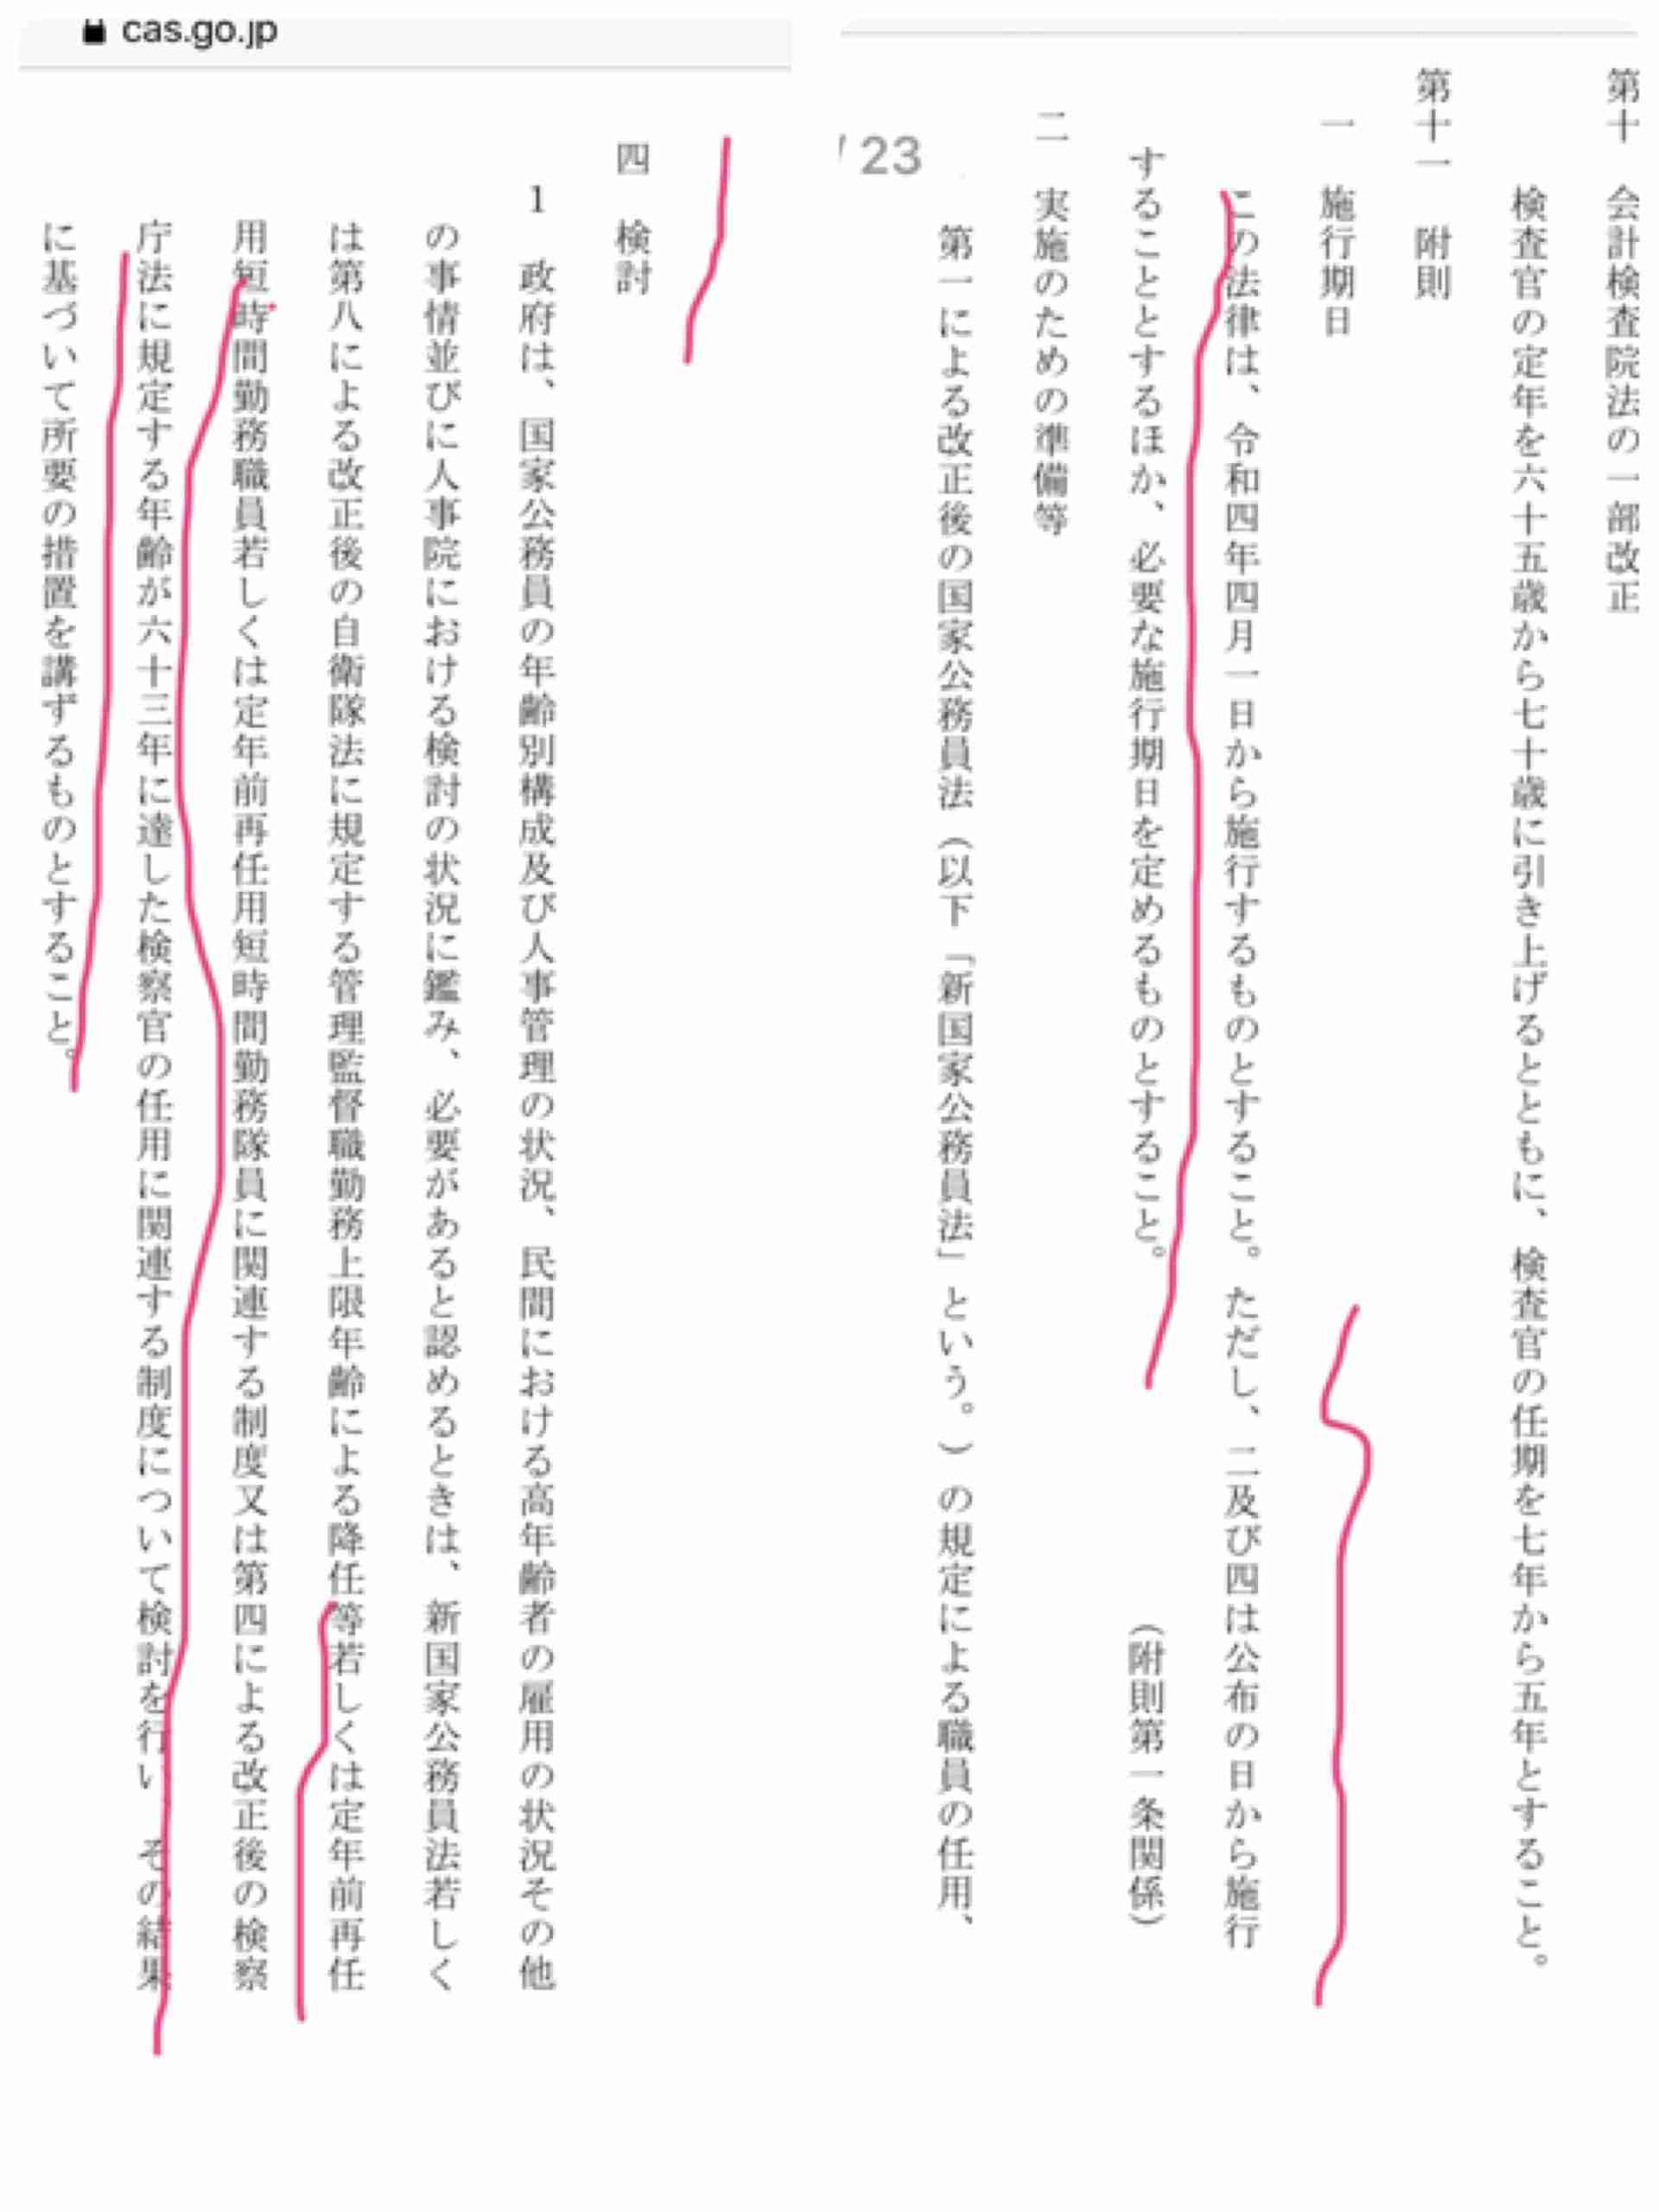 第十 会計検査院法の一部改正
検査官の定年を六十五歳から七十歳に引き上げるとともに、検査官の任期を七年から五年とすること。
第十一 附則
一 施行期日
この法律は、令和四年四月一日から施行するものとすること。ただし、二及び四は公布の日から施行
することとするほか、必要な施行期日を定めるものとすること。 (附則第一条関係)
二 実施のための準備等
第一による改正後の国家公務員法(以下「新国家公務員法」という。)の規定による職員の任用、
/ 23
cas.go.jp
四 検討
1 政府は、国家公務員の年齢別構成及び人事管理の状況、民間における高年齢者の雇用の状況その他
の事情並びに人事院における検討の状況に鑑み、必要があると認めるときは、新国家公務員法若しく
は第八による改正後の自衛隊法に規定する管理監督職勤務上限年齢による降任等若しくは定年前再任
用短時間勤務職員若しくは定年前再任用短時間勤務隊員に関連する制度又は第四による改正後の検察
庁法に規定する年齢が六十三年に達した検察官の任用に関連する制度について検討を行い その結果
に基づいて所要の措置を講ずるものとすること。